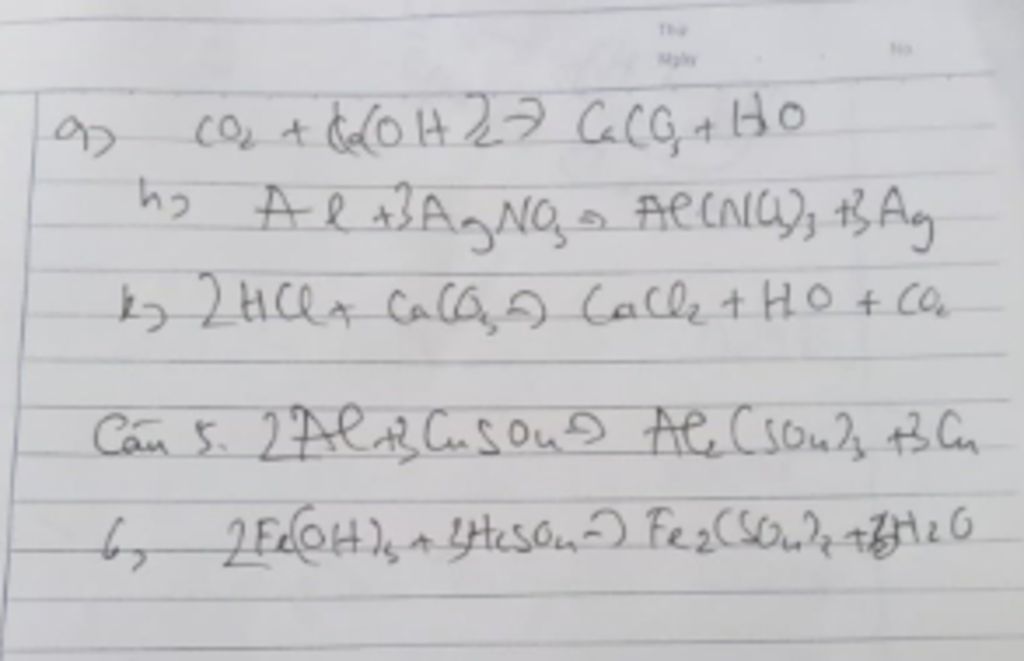 Thứ
Ngày No
g) CO2 + Ca(OH)2 → CaCO3 + HO
h) Al + 3AgNO3 → Al(NO3)3 + 3Ag
k) 2HCl + CaCO3 → CaCl2 + HO + CO2
Câu 5. 2Al + 3CuSO4 → Al2(SO4)3 + 3Cu
6) 2Fe(OH)3 + 3H2SO4 → Fe2(SO4)3 + H2O